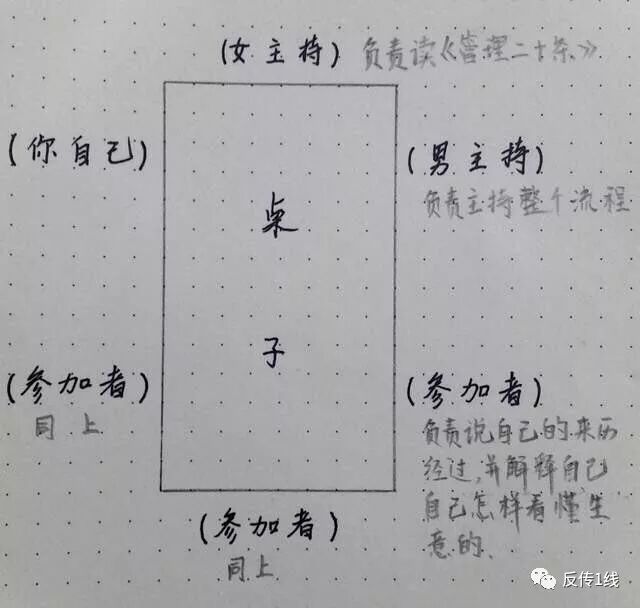 (女主持) 负责读《管理二十条》
(你自己)
(男主持)
负责主持整个流程
桌
子
(参加者)
同上
(参加者)
负责说自己的来历
经过,并解释自己
自己怎样看懂生
意的、
(参加者)
同上
反传1线